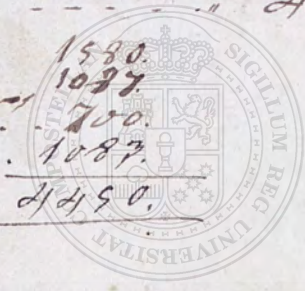 1580.
1087.
700.
1083.
4450.
SIGILLUM REG UNIVERSITAT